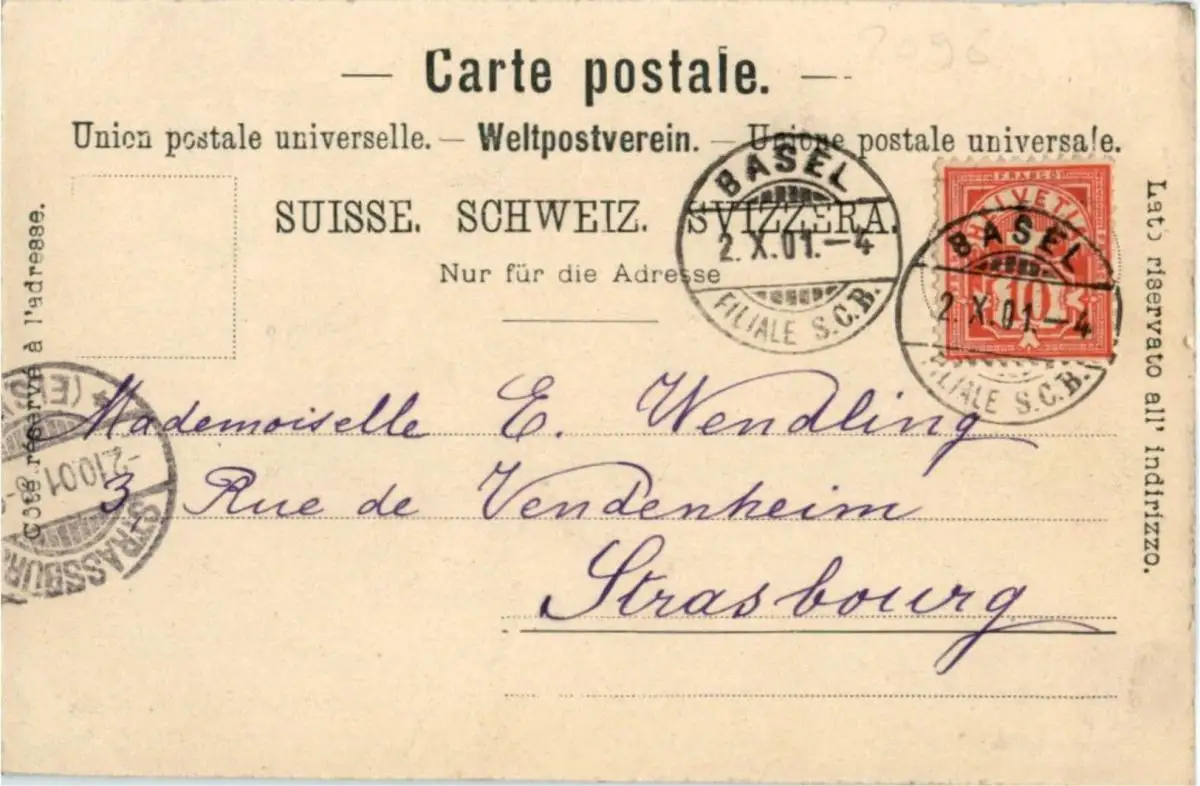 7096
— Carte postale. —
Union postale universelle. — Weltpostverein. — Unione postale universale.
SUISSE. SCHWEIZ. SVIZZERA.
Nur für die Adresse
Côté réservé à l'adresse.
Lato riservato all' indirizzo.
BASEL
2. X. 01. – 4
FILIALE S.C.B.
FRANCO
HELVETIA
10
BASEL
2. X. 01. – 4
FILIALE S.C.B.
Mademoiselle E. Wendling
3, Rue de Vendenheim
Strasbourg
STRASSBURG
-2.10.01